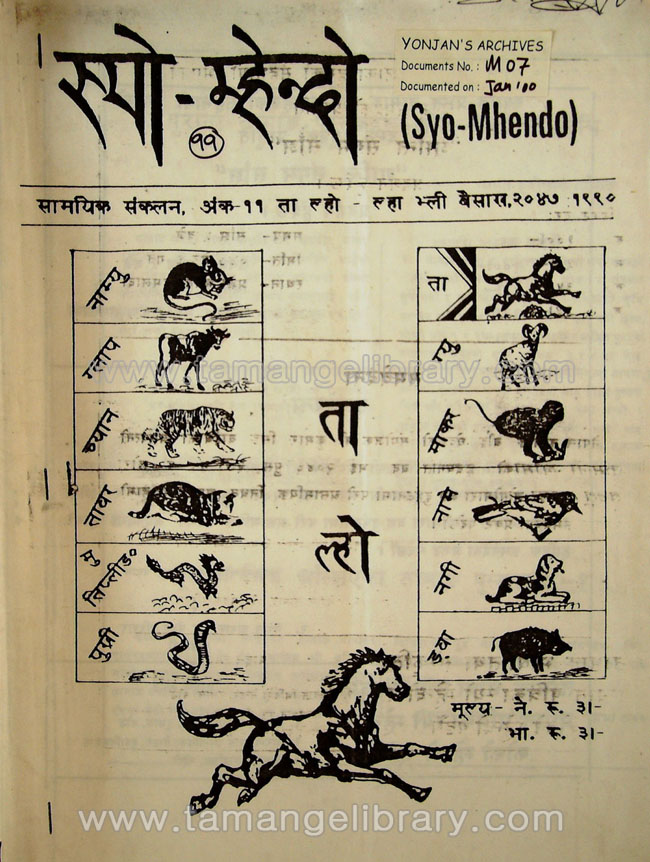 स्यो-म्हेन्दो
११
YONJAN'S ARCHIVES
Documents No. : M 07
Documented on : Jan '00
(Syo-Mhendo)
सामयिक संकलन, अंक-११ ता ल्हो - ल्हा भ्ली बैसाख, २०४७ १९९०
नाम्यु
ग्लाप
च्यान
तावर
मु
पुप्री
ता
ल्हो
ता
ग्यु
माकर
नाम्य
नगी
डवा
मूल्य - ने. रू. ३।-
भा. रू. ३।-
www.tamangelibrary.com
www.tamangelibrary.com